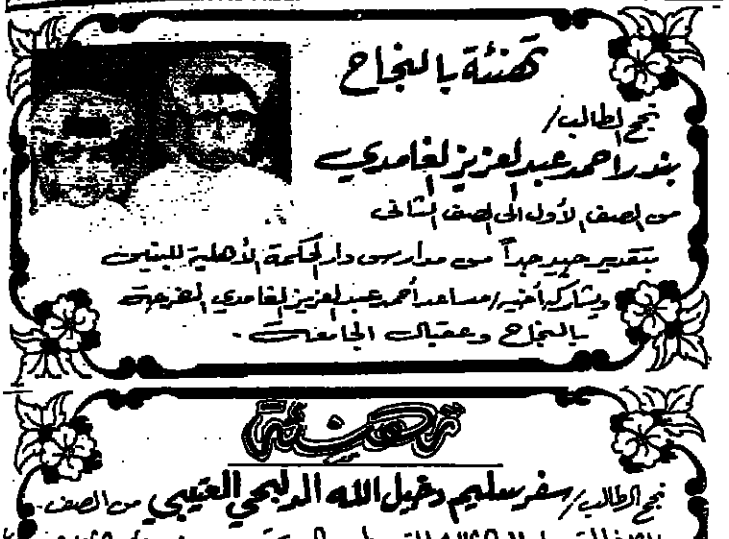 تهنئة بالنجاح
نجح الطالب/
بندر أحمد عبد العزيز الغامدي
من الصف الأول الى الصف الثاني
بتقدير جيد جداً من مدارس دار الحكمة الأهلية للبنين
ويشاركه أخيه/مساعد أحمد عبد العزيز الغامدي الفرحة
بالنجاح وعقبال الجامعة.
تهنئة
نجح الطالب/سفر سليم دخيل الله الدلبحي العتيبي من الصف